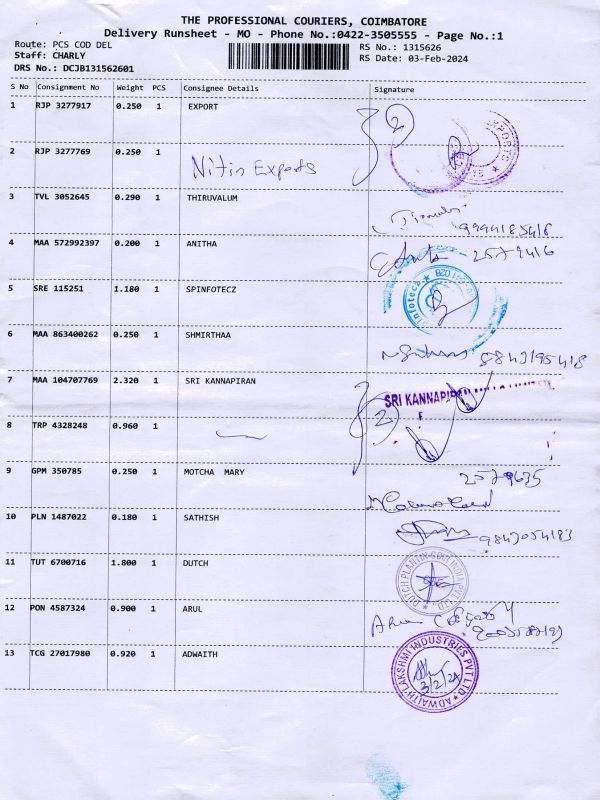 THE PROFESSIONAL COURIERS, COIMBATORE
Delivery Runsheet - MO - Phone No.:0422-3505555 - Page No.:1
Route: PCS COD DEL
RS No.: 1315626
Staff: CHARLY
RS Date: 03-Feb-2024
DRS No.: DCJB131562601
S No Consignment No Weight PCS Consignee Details Signature
1 RJP 3277917 0.250 1 EXPORT
2 RJP 3277769 0.250 1 Nitin Exports
3 TVL 3052645 0.290 1 THIRUVALUM
9994185418
4 MAA 572992397 0.200 1 ANITHA 2579416
5 SRE 115251 1.180 1 SPINFOTECZ
6 MAA 863400262 0.250 1 SHMIRTHAA
7 MAA 104707769 2.320 1 SRI KANNAPIRAN
SRI KANNAPIRAN
8 TRP 4328248 0.960 1
9 GPM 350785 0.250 1 MOTCHA MARY
10 PLN 1487022 0.180 1 SATHISH
9843054183
11 TUT 6700716 1.800 1 DUTCH
DUTCH PLANTIN COIR INDIA PVT LTD
12 PON 4587324 0.900 1 ARUL
13 TCG 27017980 0.920 1 ADWAITH
ADWAITH LAKSHMI INDUSTRIES PVT LTD
3/2/24